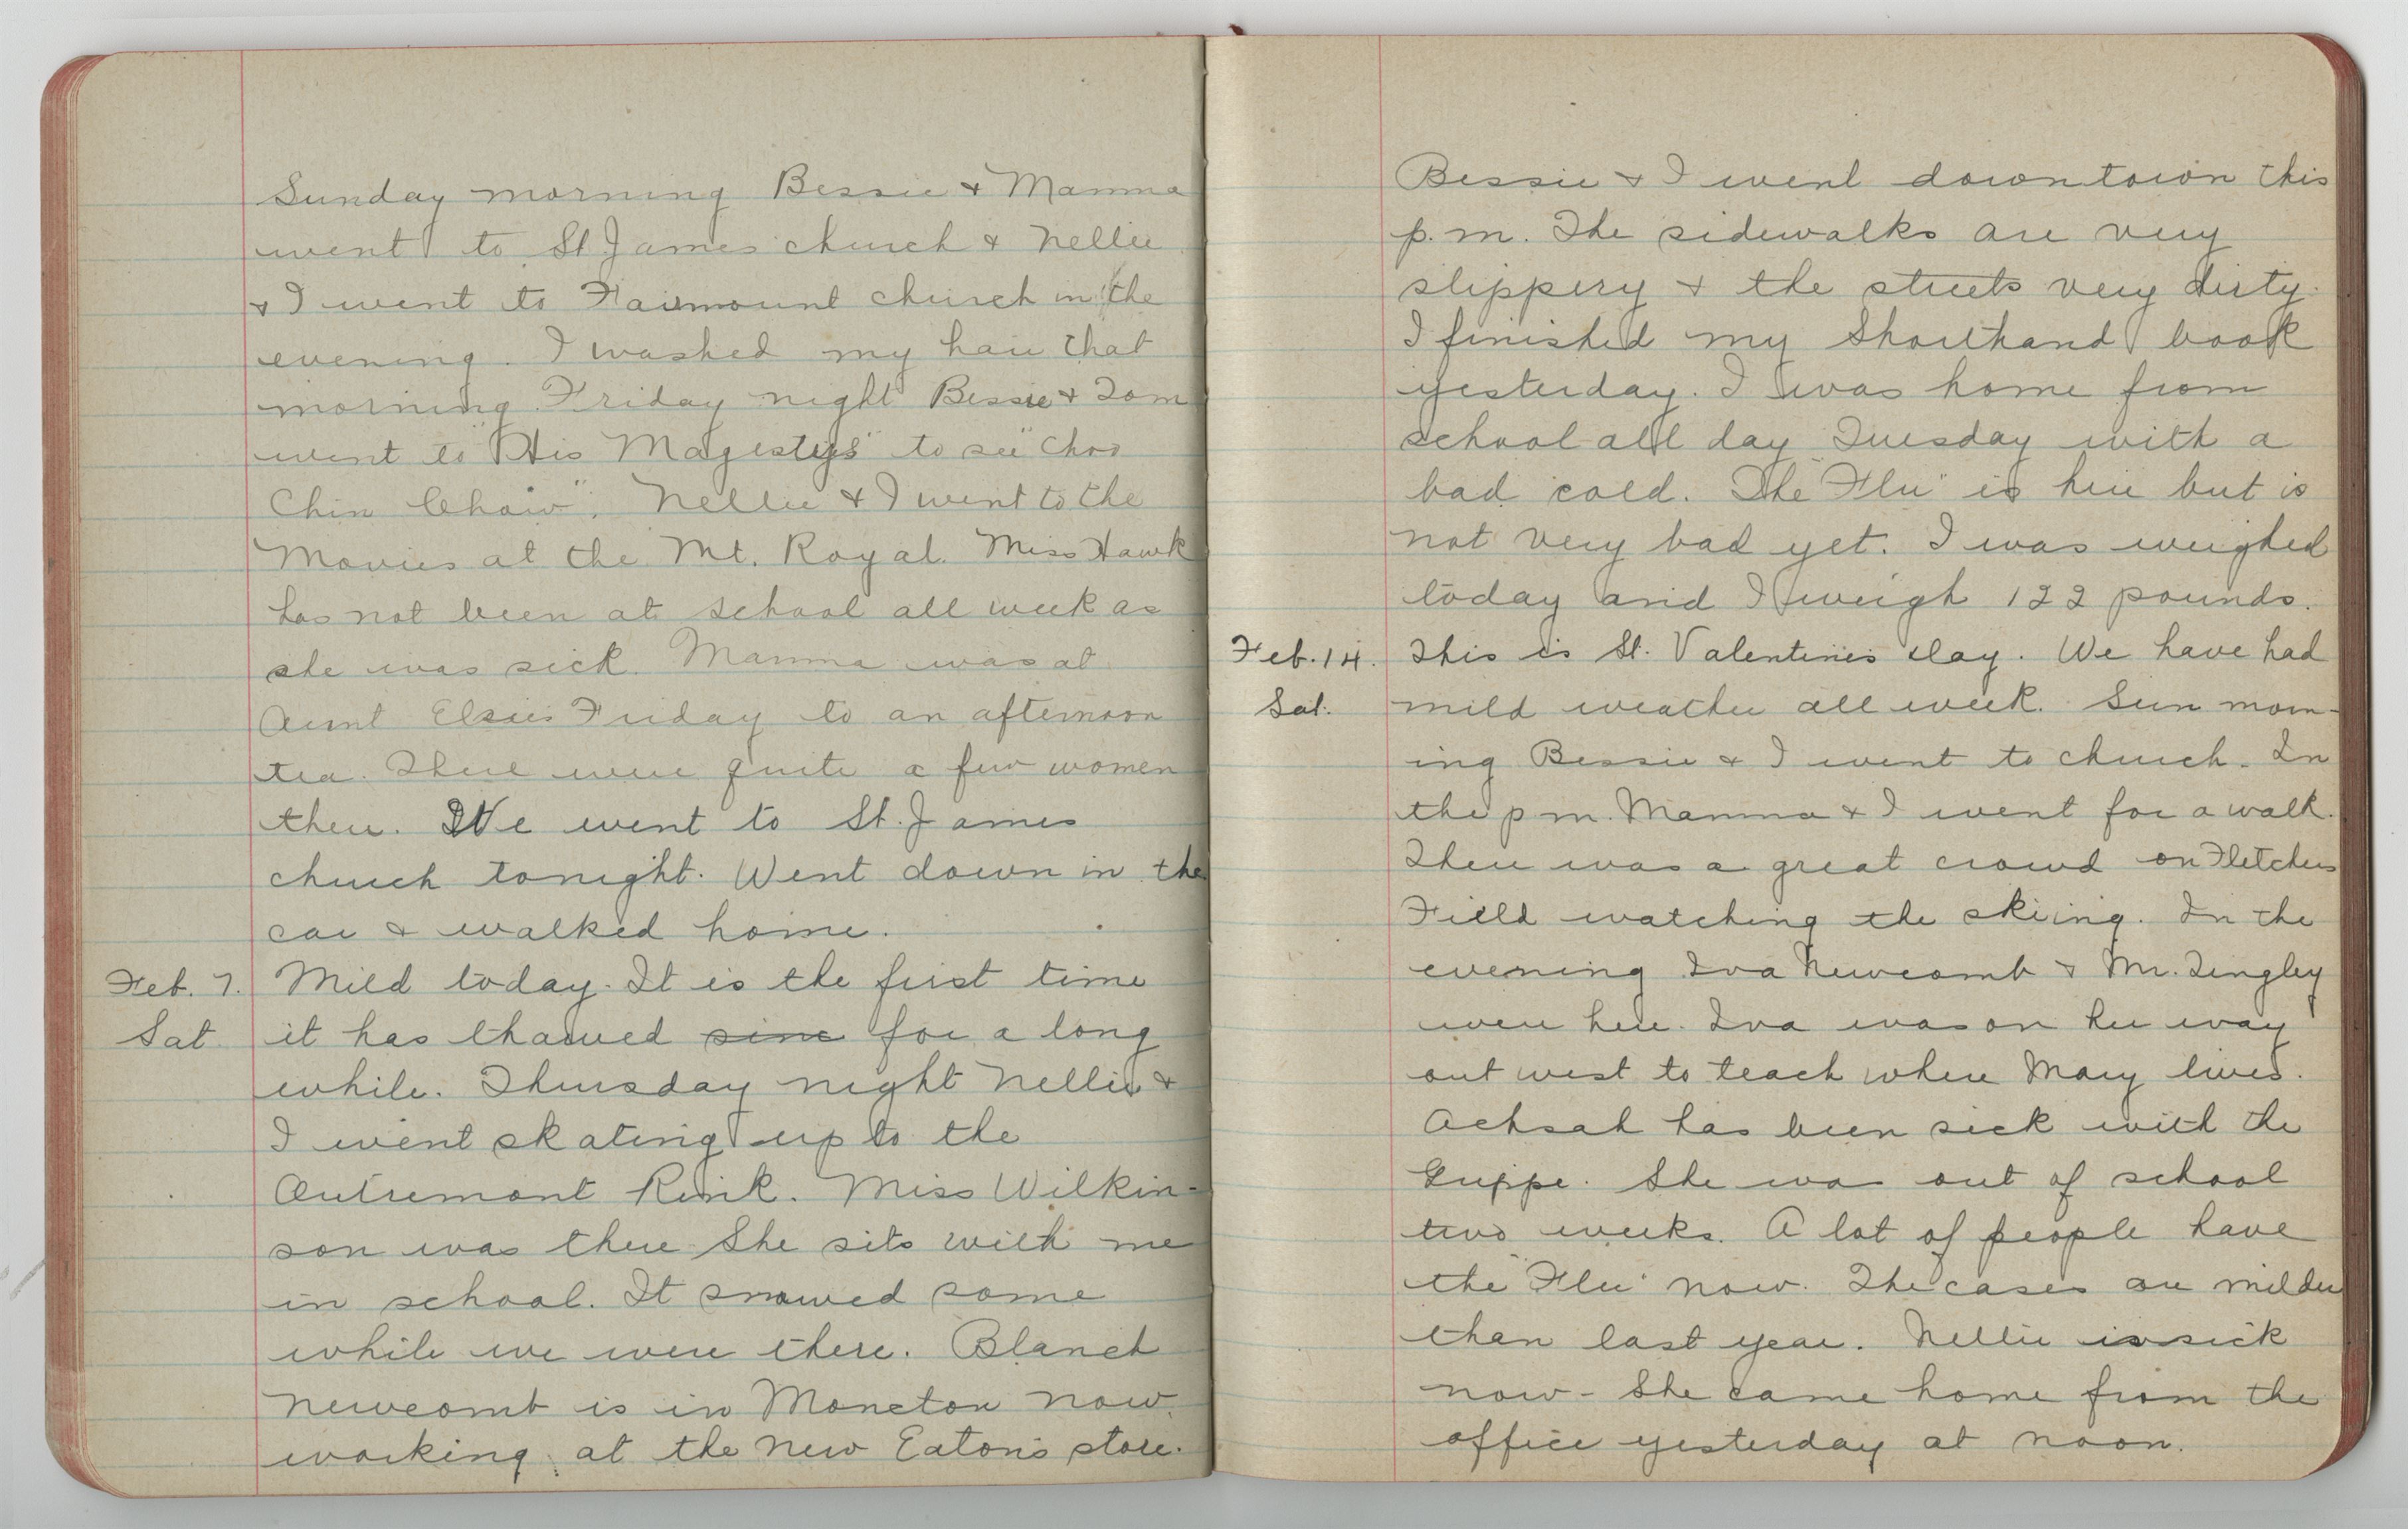 Sunday morning Bessie & Mamma
went to St James church & Nellie
& I went to Fairmount church in the
evening. I washed my hair that
morning. Friday night Bessie & Tom
went to "His Magestys" to see "Choo
Chin Chow". Nellie & I went to the
Movies at the Mt. Royal. Miss Hawk
has not been at school all week as
she was sick. Mamma was at
Aunt Elsies Friday to an afternoon
tea. There were quite a few women
there. We went to St. James
church tonight. Went down in the
car & walked home.
Feb. 7. Mild today. It is the first time
Sat it has thawed sinc for a long
while. Thursday night Nellie &
I went skating up to the
Outremont Rink. Miss Wilkin-
son was there She sits with me
in school. It snowed some
while we were there. Blanch
Newcomb is in Moncton now
working at the new Eaton's store.
Bessie & I went downtown this
p.m. The sidewalks are very
slippery & the streets very dirty.
I finished my Shorthand book
yesterday. I was home from
school all day Tuesday with a
bad cold. The "Flu" is here but is
not very bad yet. I was weighed
today and I weigh 122 pounds.
Feb. 14. This is St. Valentine's day. We have had
Sat. mild weather all week. Sun morn-
ing Bessie & I went to church. In
the p m. Mamma & I went for a walk.
There was a great crowd on Fletchers
Field watching the skiing. In the
evening Iva Newcomb & Mr. Tingley
were here. Iva was on her way
out west to teach where Mary lives.
Achsah has been sick with the
Grippe. She was out of school
two weeks. A lot of people have
the "Flu" now. The cases are milder
than last year. Nellie is sick
now - She came home from the
office yesterday at noon.